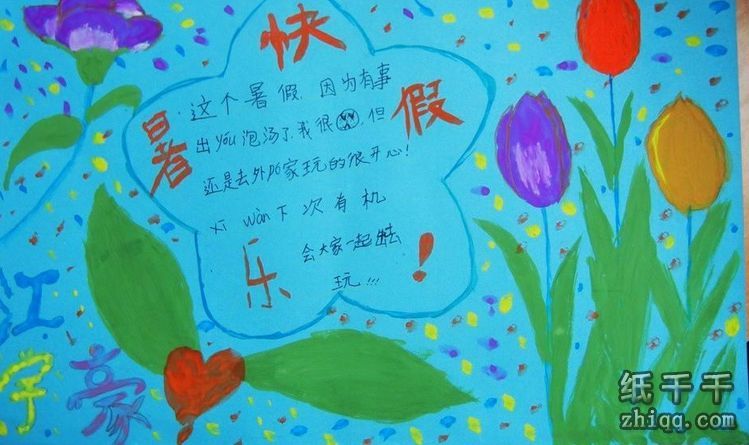 快
暑 假
乐 !
这个暑假，因为有事
出you泡汤了，我很，但
还是去外po家玩的很开心！
xi wàn下次有机
会大家一起出去
玩!!!
江
宇豪
纸千千
zhiqq.com